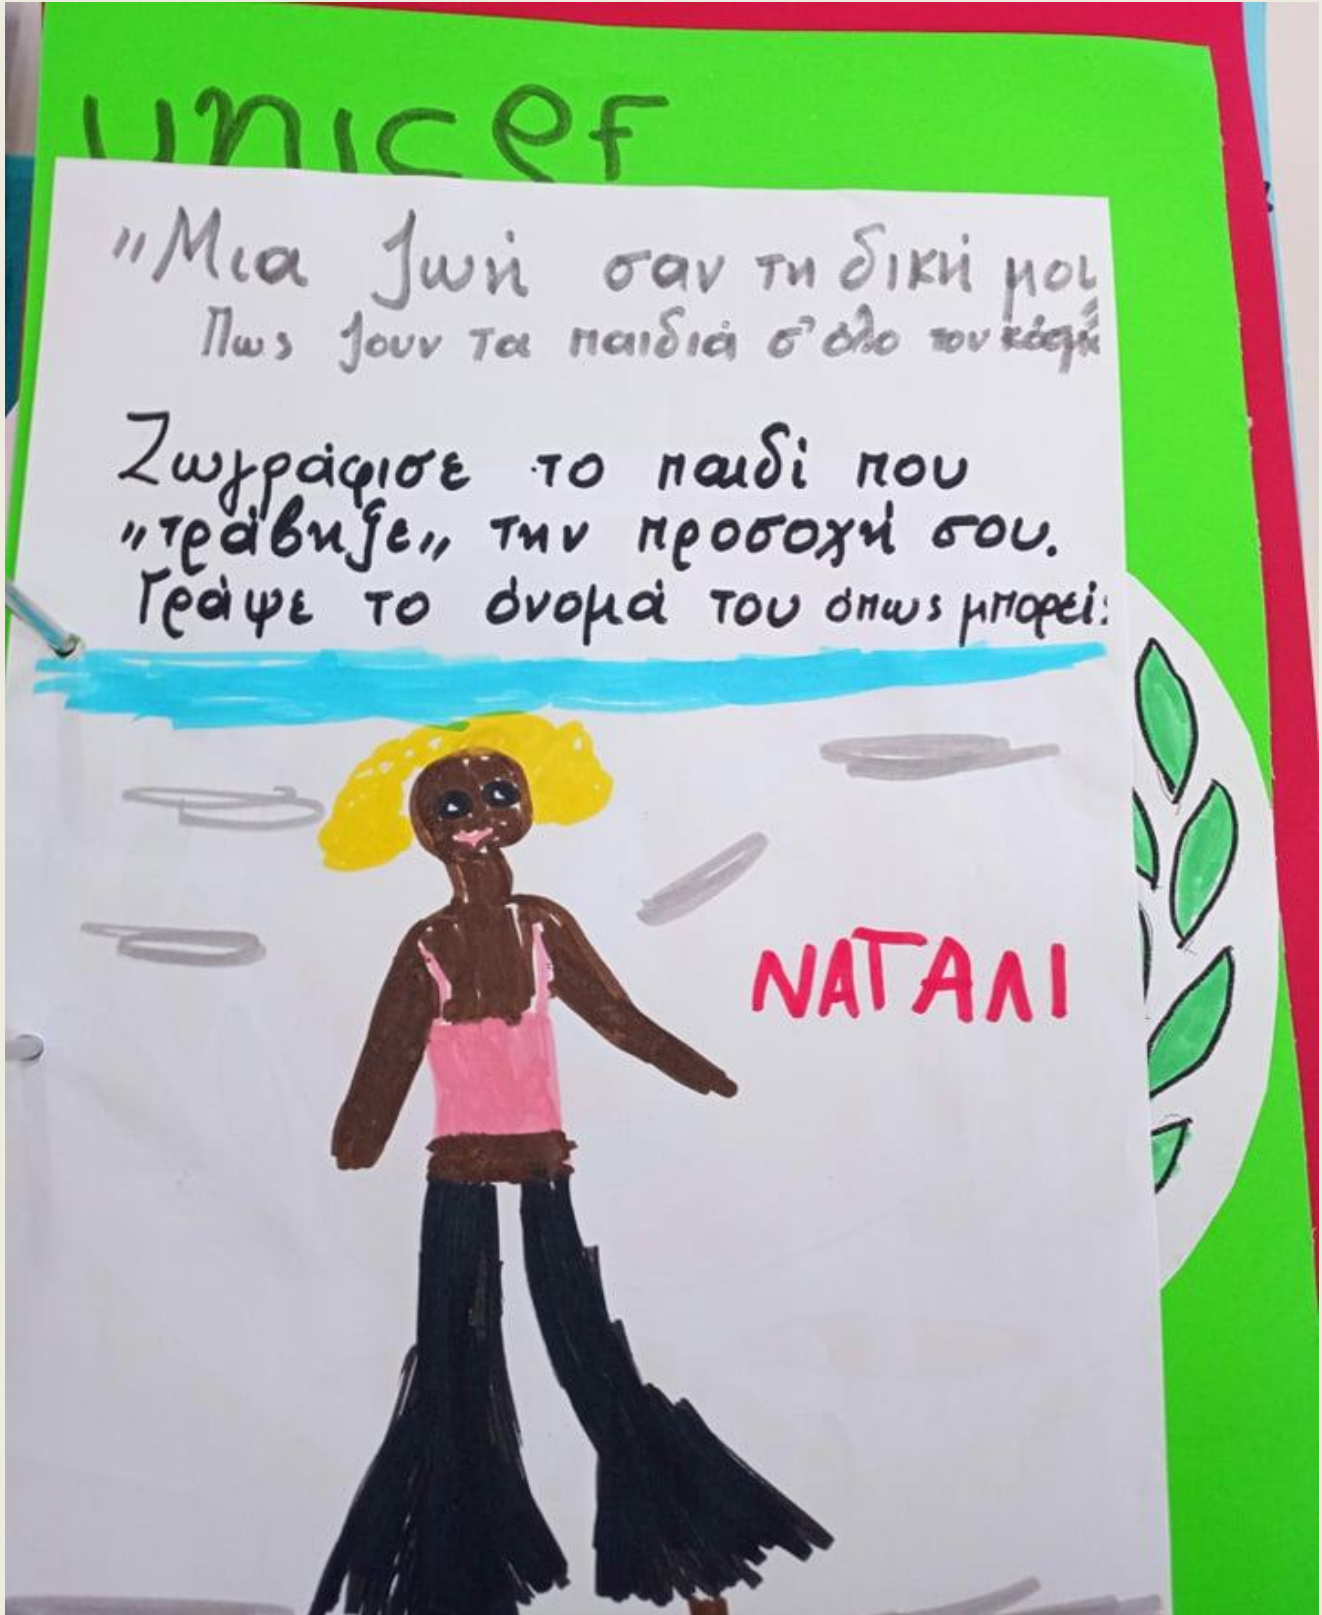 unicef
"Μια ζωή σαν τη δική μου
Πως ζουν τα παιδιά σ' όλο τον κόσμο
Ζωγράφισε το παιδί που
"τράβηξε" την προσοχή σου.
Γράψε το όνομά του όπως μπορείς
ΝΑΤΑΛΙ